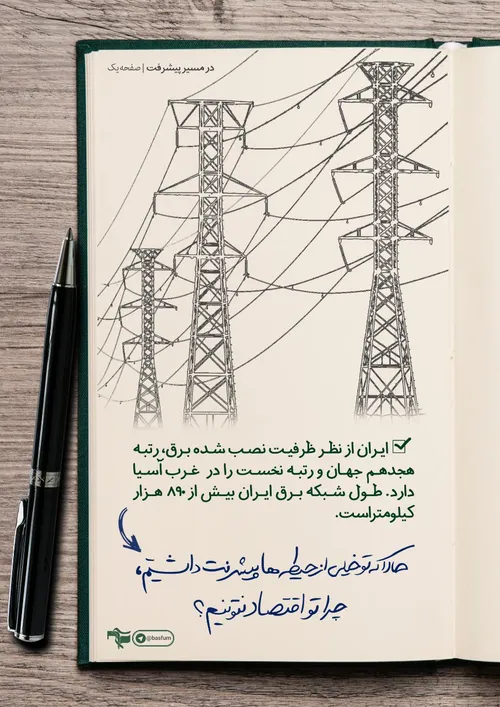 در مسیر پیشرفت | صفحه یک
ایران از نظر ظرفیت نصب شده برق، رتبه
هجدهم جهان و رتبه نخست را در غرب آسیا
دارد. طول شبکه برق ایران بیش از ۸۹۰ هزار
کیلومتراست.
حالا که تو خیلی از حیطه ها پیشرفت داشتیم،
چرا تو اقتصاد نتونیم؟
@basfum